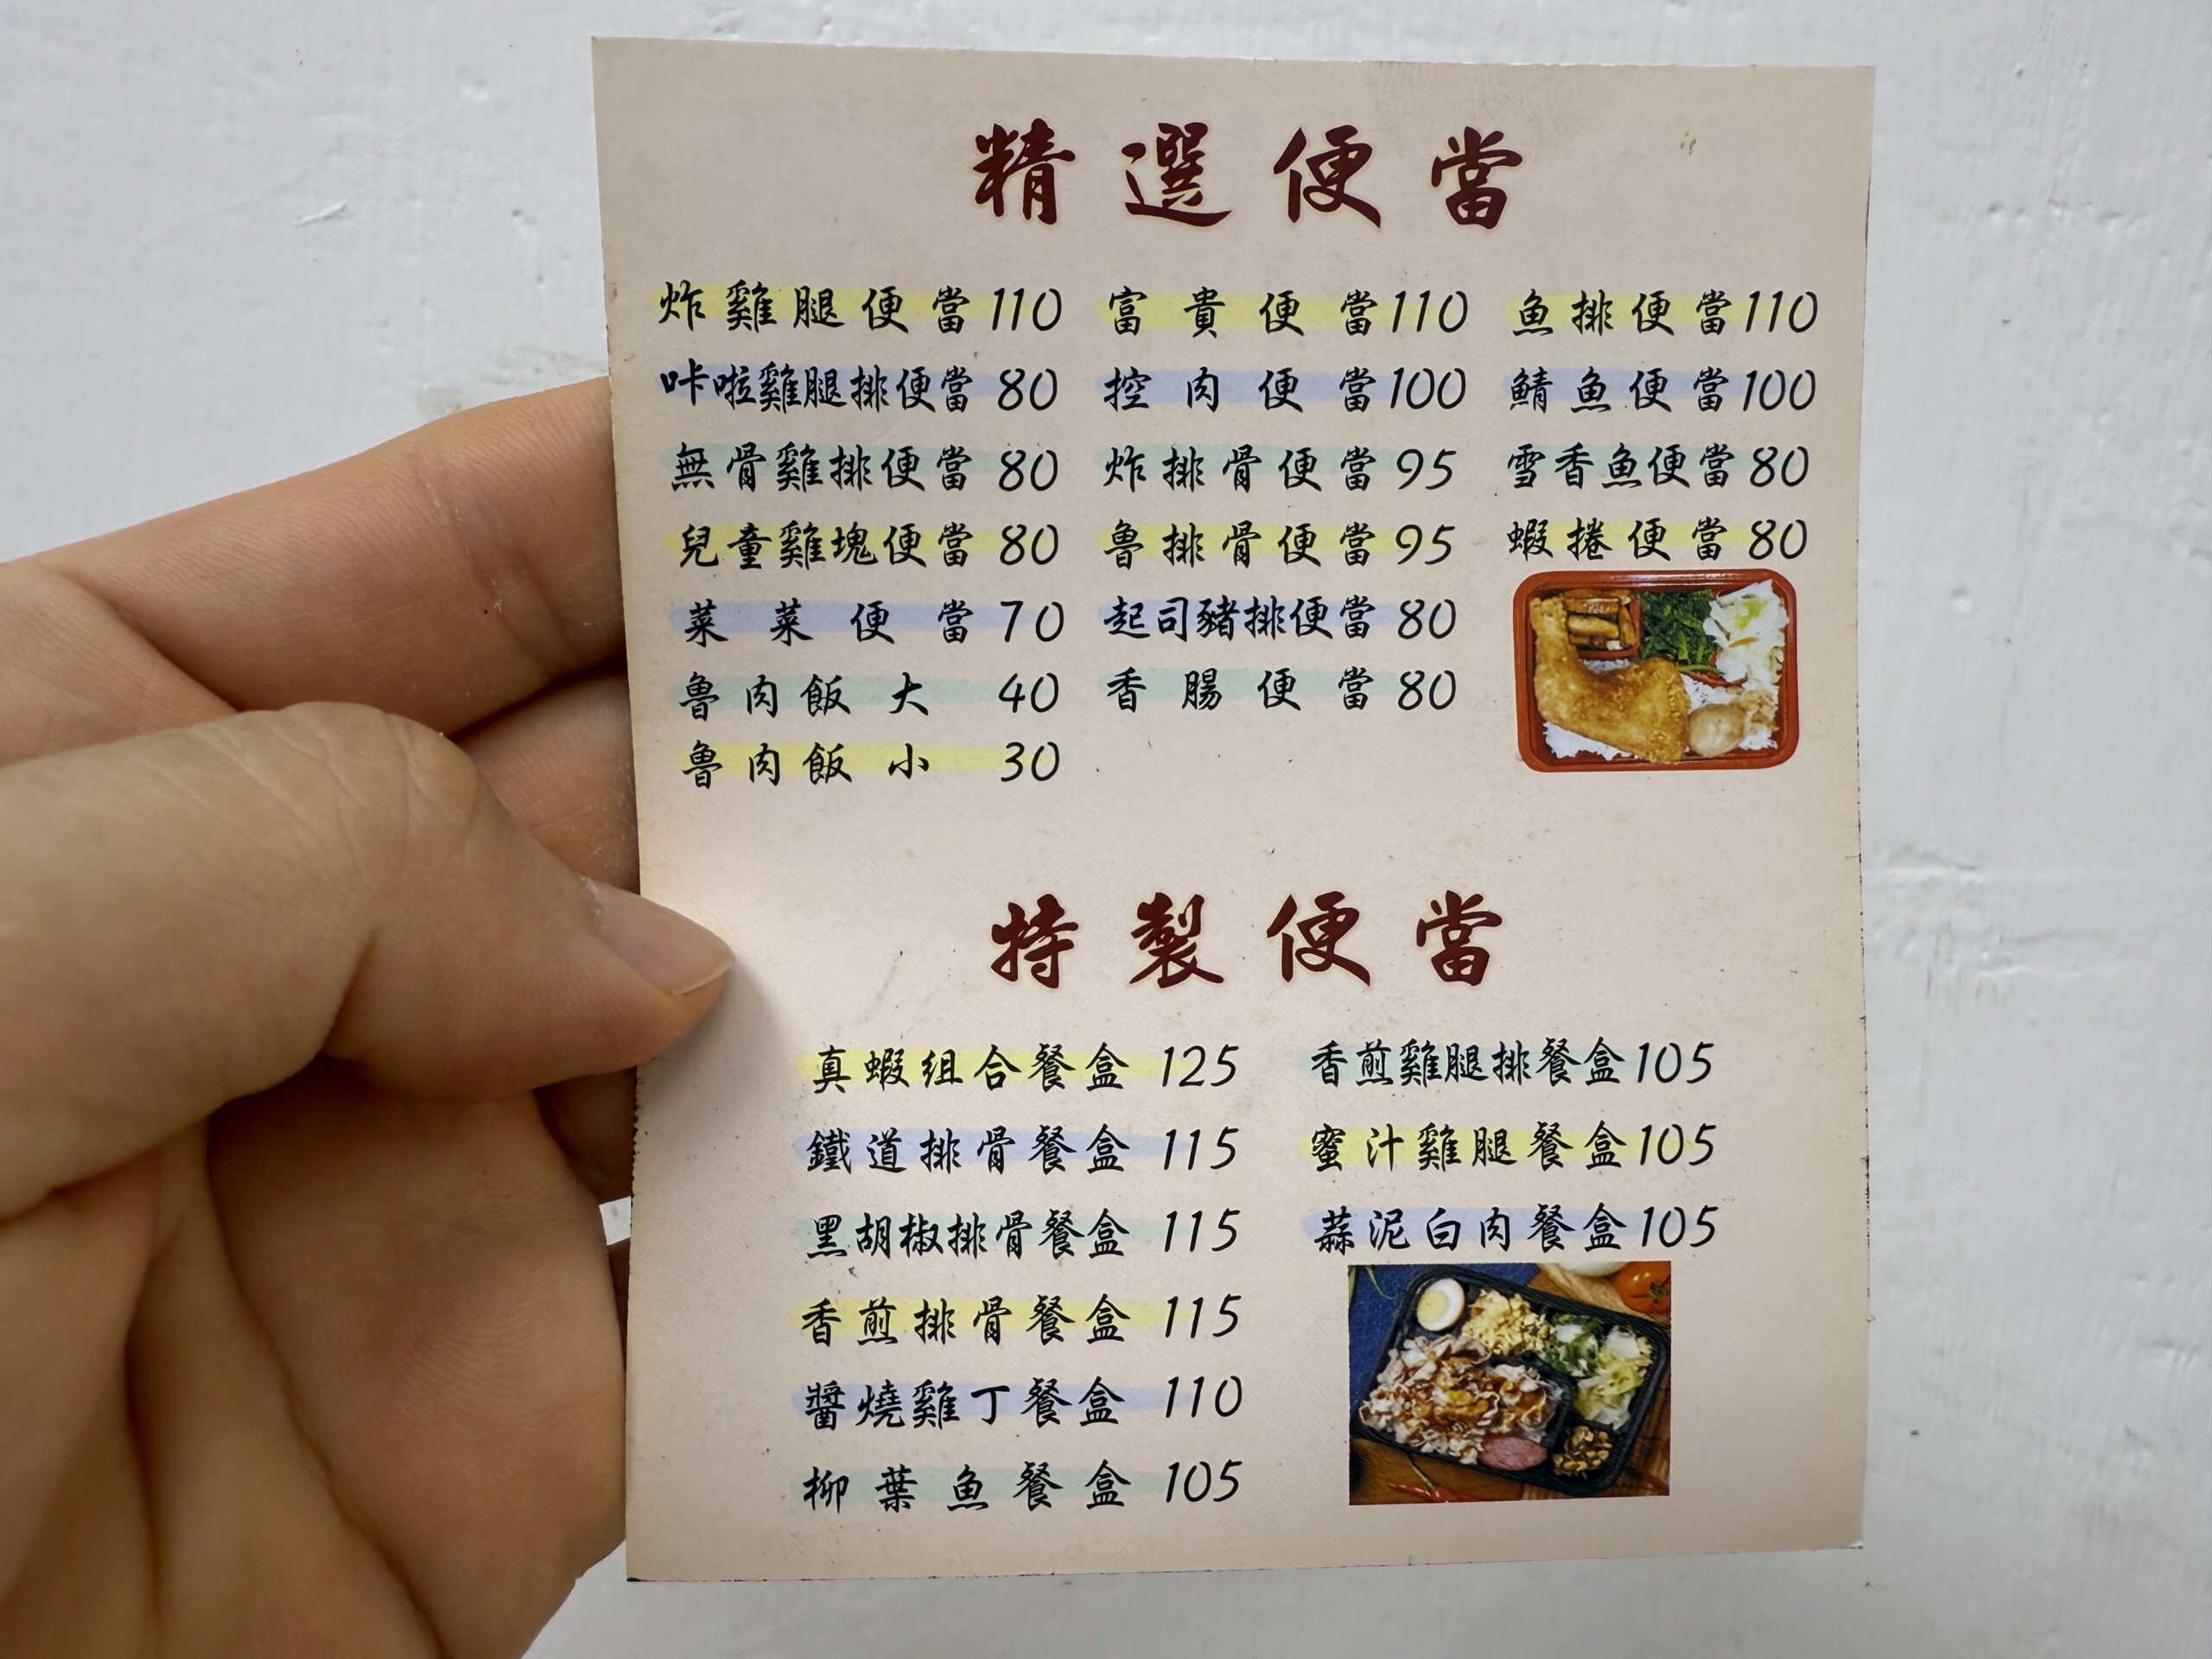 精選便當
炸雞腿便當110
咔啦雞腿排便當 80
無骨雞排便當 80
兒童雞塊便當 80
菜菜便當 70
魯肉飯大 40
魯肉飯小 30
富貴便當110
控肉便當100
炸排骨便當 95
魯排骨便當 95
起司豬排便當 80
香腸便當 80
魚排便當110
鯖魚便當100
雪香魚便當 80
蝦捲便當 80
特製便當
真蝦組合餐盒 125
鐵道排骨餐盒 115
黑胡椒排骨餐盒 115
香煎排骨餐盒 115
醬燒雞丁餐盒 110
柳葉魚餐盒 105
香煎雞腿排餐盒105
蜜汁雞腿餐盒105
蒜泥白肉餐盒105